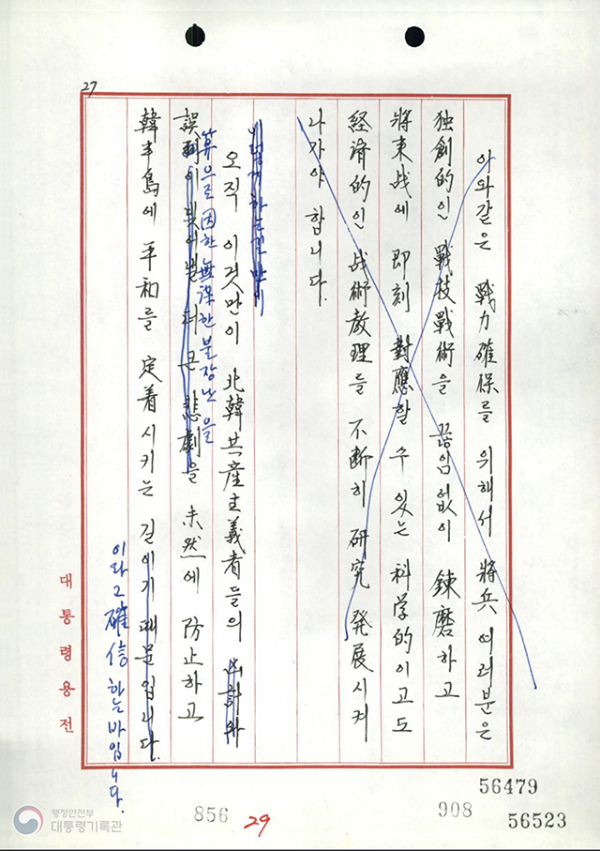 27
이와같은 戰力確保를 위해서 將兵여러분은
独創的인 戰技戰術을 끊임없이 錬磨하고
將来战에 即刻 對應할 수 있는 科学的이고도
経済的인 战術教理를 不断히 研究 発展시켜
나가야 합니다.
오직 이것만이 北韓共産主義者들의
算으로 因한 無謀한 불장난을
誤 큰 悲劇을 未然에 防止하고
韓半島에 平和를 定着시키는 길이기 때문입니다.
이라고 確信하는 바입니다.
대통령용전
56479
856 29 908 56523
행정안전부
대통령기록관